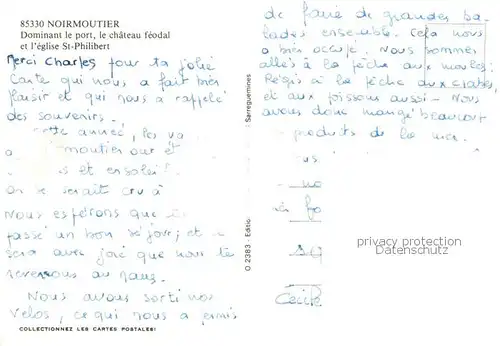 85330 NOIRMOUTIER
Dominant le port, le château féodal
et l'église St-Philibert
Merci Charles pour ta jolie
Carte qui nous a fait
plaisir et qui nous a rappelé
des souvenirs.
cette année, les
moutier ont et
et ensoleil
On se serait cru à
Nous espérons que
passé un bon séjour; et
sera avec joie que nous te
reverrons au
Nous avons sorti nos
vélos, ce qui nous a permis
COLLECTIONNEZ LES CARTES POSTALES!
O 2383 - Editio. - Sarreguemines
de faire de grandes ba-
lades ensemble. Cela nous
a bien occupé. Nous sommes
allés à la pêche aux moules.
Régis à la pêche aux crabes,
et aux poissons aussi - Nous
avons donc mangé beaucoup
produits de la mer.
Cécile
privacy protection
Datenschutz